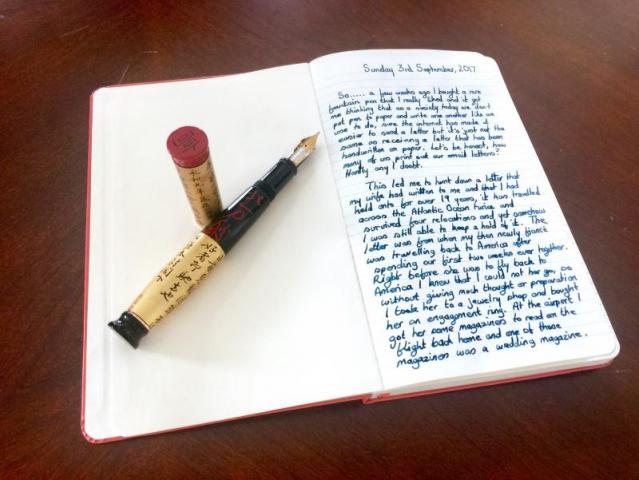 Sunday 3rd September, 2017
So..... a few weeks ago I bought a
fountain pen that I really liked and it got
me thinking that as a society today we don't
put pen to paper and write one another like we
use to do, sure the internet has made it
easier to send a letter but it's just not the
same as receiving a letter that has been
handwritten on paper. Let's be honest, how
many of us print out our email letters?
Hardly any I doubt.
This led me to hunt down a letter that
my wife had written to me and that I had
held onto for over 19 years, it has travelled
across the Atlantic Ocean twice and
survived four relocations and yet somehow
I was still able to keep a hold of it. The
letter was from when my then newly fiancé
was travelling back to America after
spending our first two weeks ever together.
Right before she was to fly back to
America I knew that I could not her go, so
without giving much thought or preparation
I took her to a jewelry shop and bought
her an engagement ring. At the airport I
got her some magazines to read on the
flight back home and one of those
magazines was a wedding magazine.
永和九年